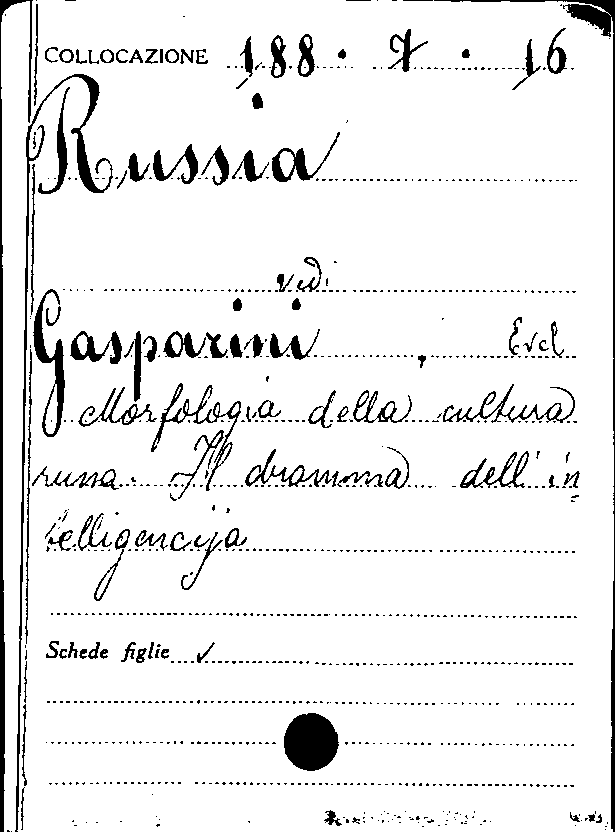 COLLOCAZIONE 188 · 7 · 16
Russia
vedi
Gasparini, Evel
Morfologia della cultura
russa. Il dramma dell' in
telligencija
Schede figlie ✓